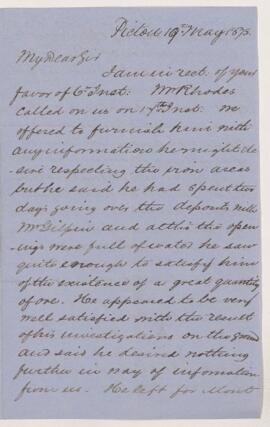 Pictou 19th May 1875.
My Dear Sir
I am in rect. of your
favor of 6th Inst: Mr Rhodes
called on us on 17th Inst: We
offered to furnish him with
any information he might de-
sire respecting the iron areas
but he said he had spent two
days going over the deposits with
Mr Gilpin and altho the open-
ings were full of water he saw
quite enough to satisfy him
of the existence of a great quantity
of ore. He appeared to be very
well satisfied with the result
of his investigations on the ground
and said he desired nothing
further in way of information
from us. He left for Mont